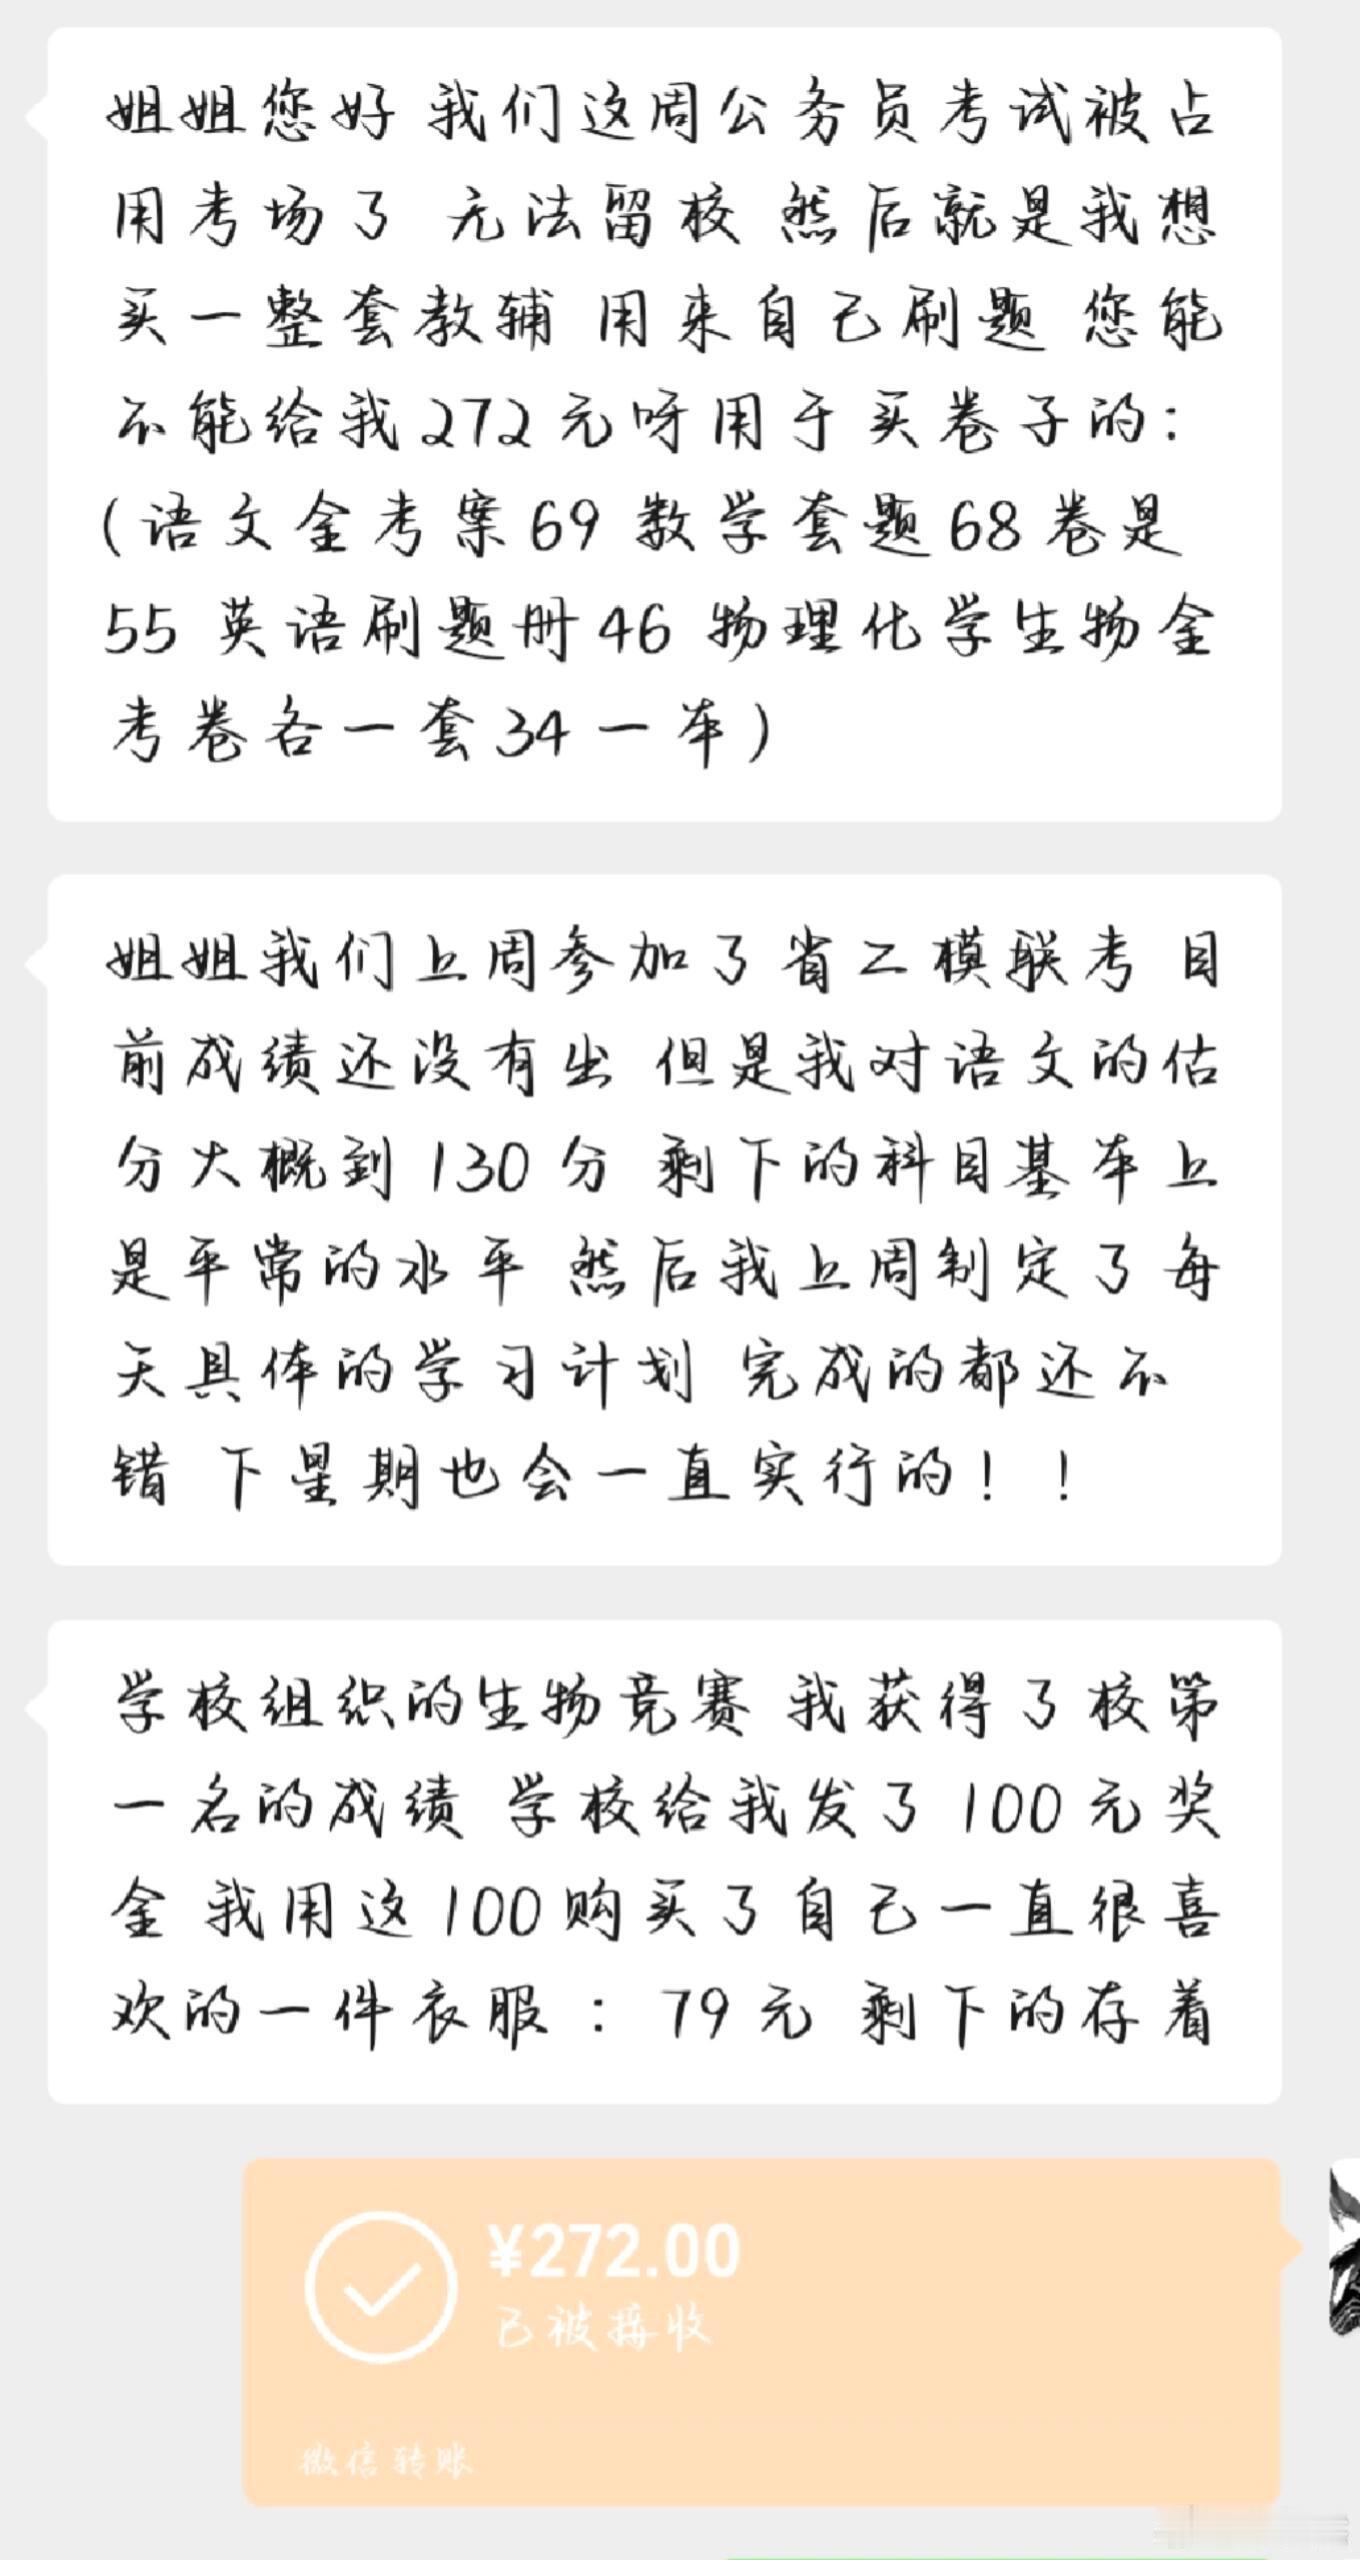 姐姐您好 我们这周公务员考试被占
用考场了 无法留校 然后就是我想
买一整套教辅 用来自己刷题 您能
不能给我272元呀用于买卷子的：
（语文金考案69 数学套题68卷是
55 英语刷题册46 物理化学生物金
考卷各一套34一本）
姐姐我们上周参加了省二模联考 目
前成绩还没有出 但是我对语文的估
分大概到130分 剩下的科目基本上
是平常的水平 然后我上周制定了每
天具体的学习计划 完成的都还不
错 下星期也会一直实行的！！
学校组织的生物竞赛 我获得了校第
一名的成绩 学校给我发了100元奖
金 我用这100购买了自己一直很喜
欢的一件衣服：79元 剩下的存着
¥272.00
已被接收
微信转账